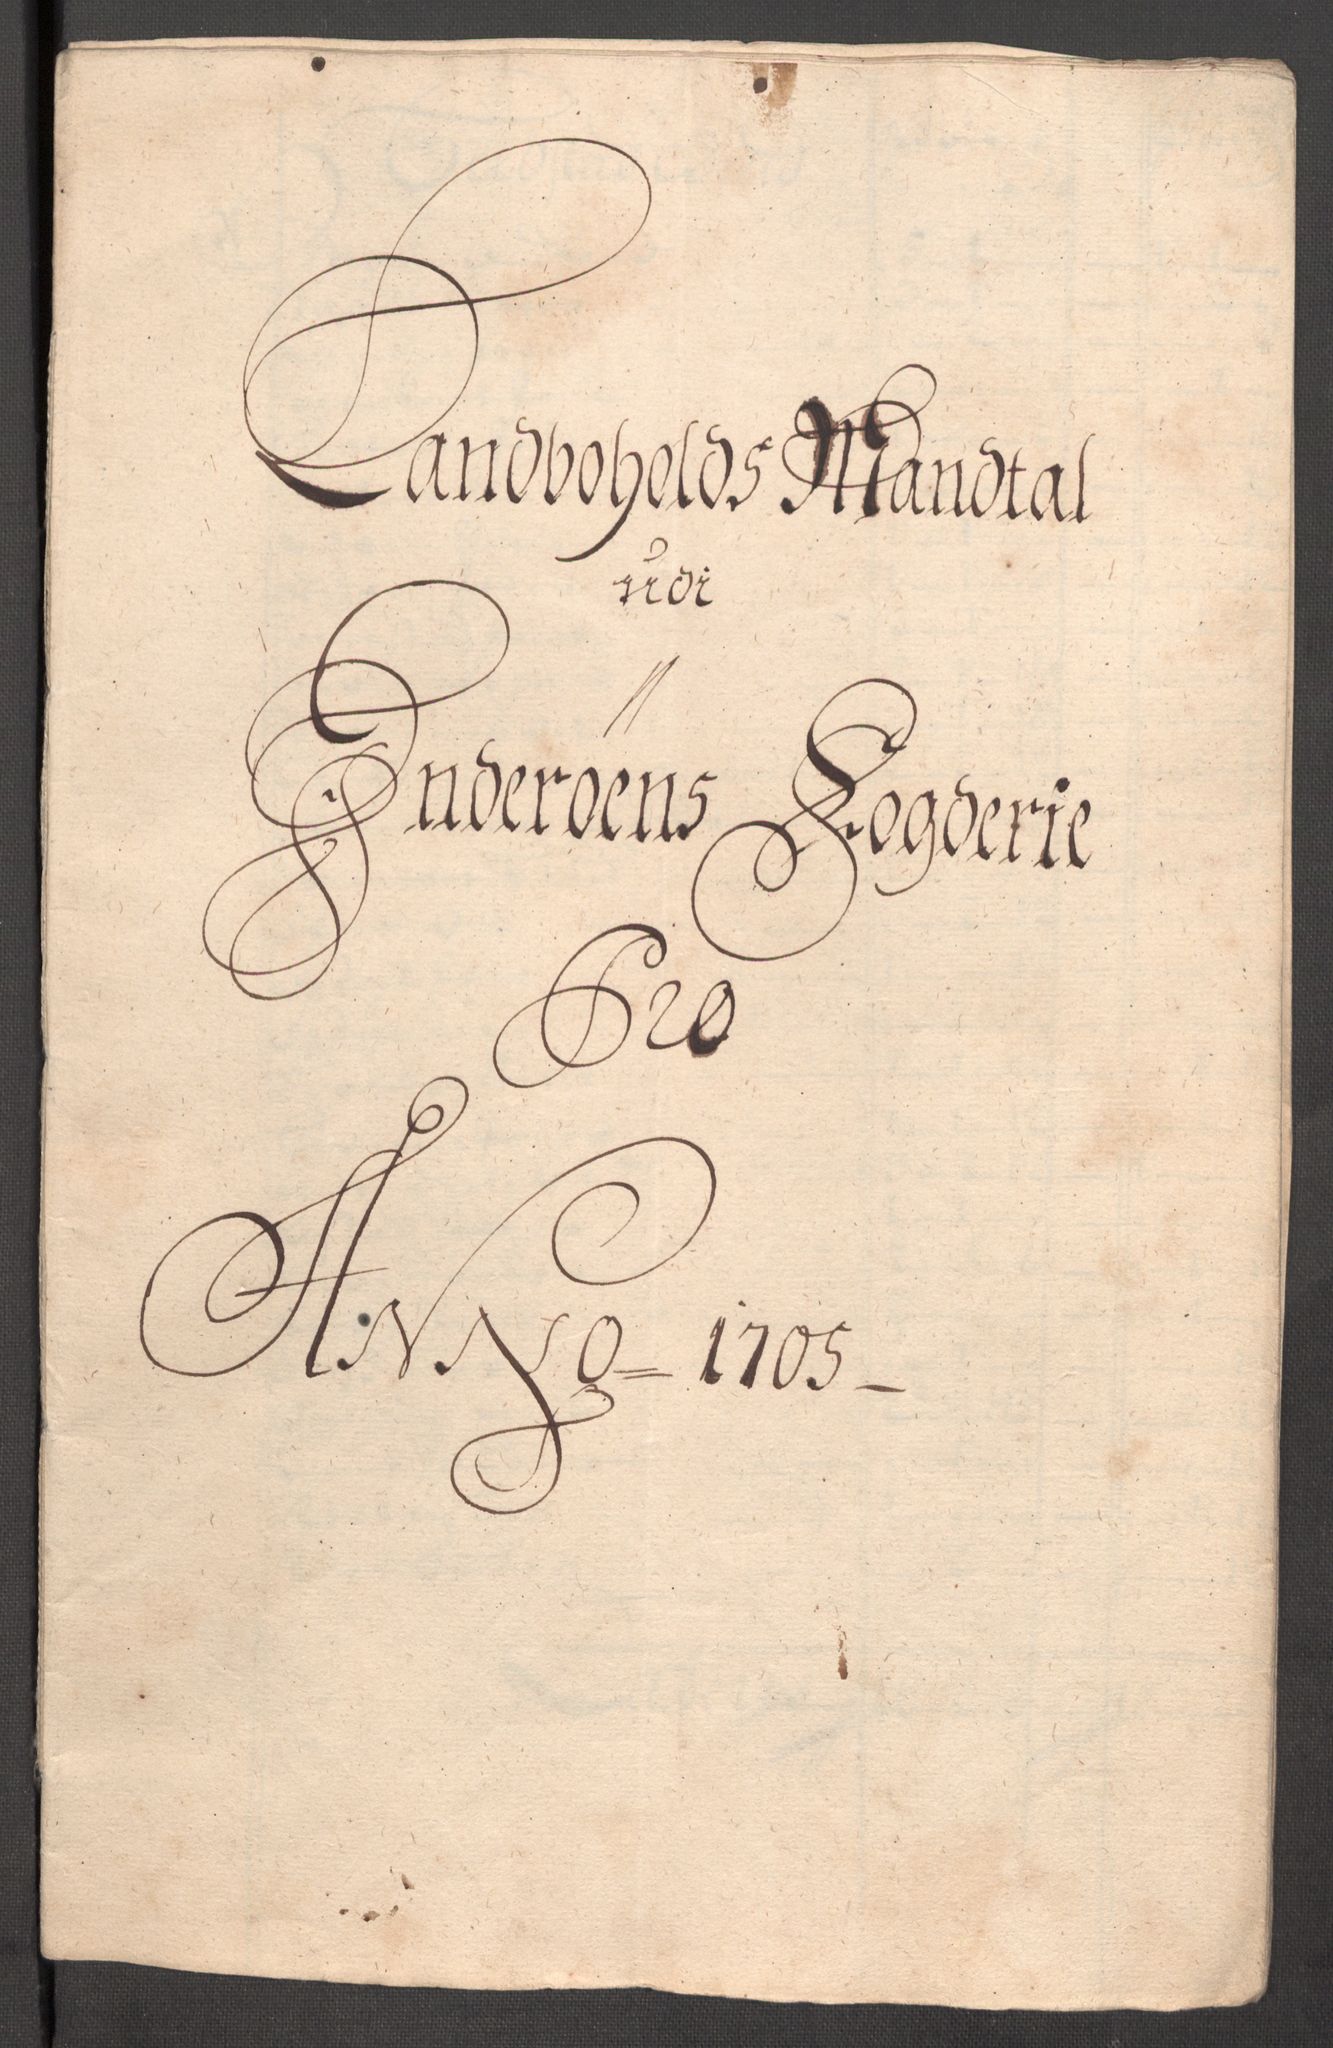 Landboholds Mandtal
udi
Inderöens Fogderie
Pro
ANNO = 1705 -